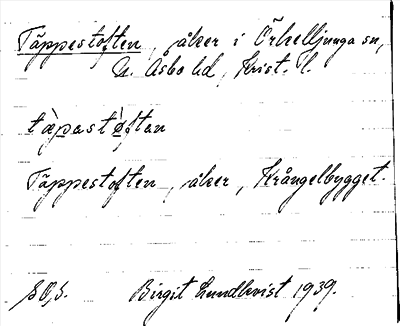 Täppestoften, åker i Örkelljunga sn,
N. Åsbo hd, Krist. l.
tæ̀pastə̀ftan
Täppestoften, åker, Krångelbygget.
Birgit Lundkvist 1939.